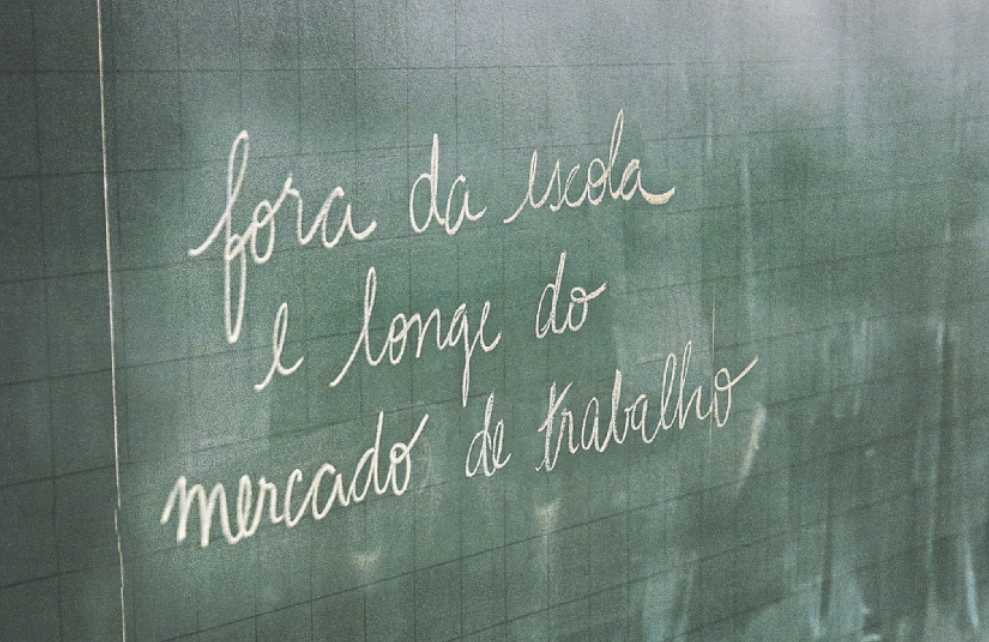 fora da escola
e longe do
mercado de trabalho